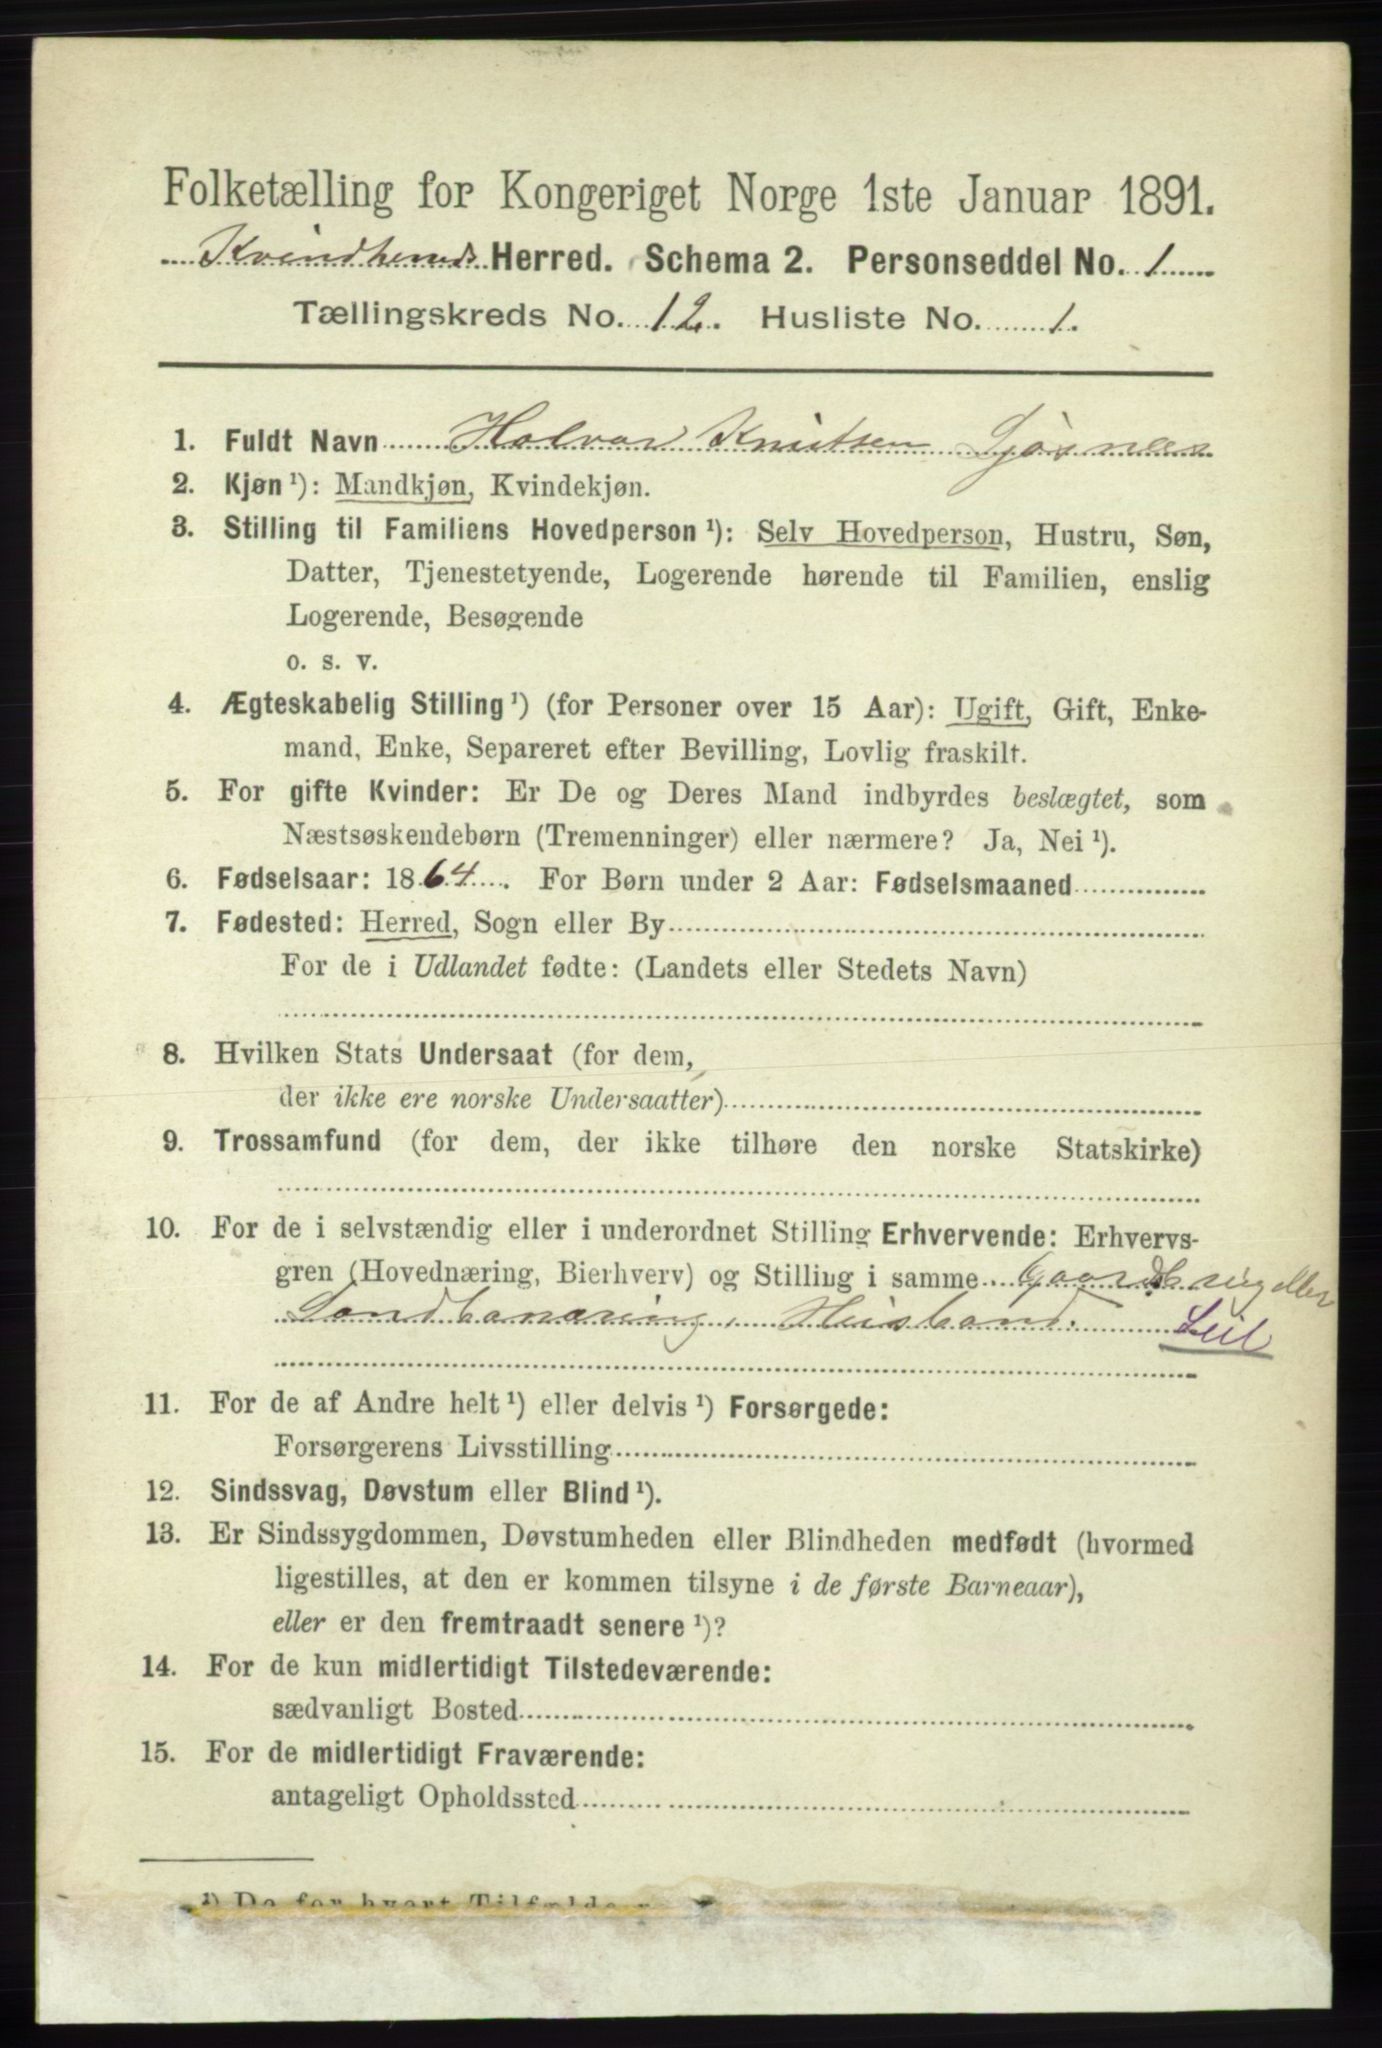 Folketælling for Kongeriget Norge 1ste Januar 1891.
Kvindherreds Herred. Schema 2. Personseddel No. 1
Tællingskreds No. 12. Husliste No. 1.
1. Fuldt Navn Halvor Knutsen Sjøsnes
2. Kjøn ¹): Mandkjøn, Kvindekjøn.
3. Stilling til Familiens Hovedperson ¹): Selv Hovedperson, Hustru, Søn,
Datter, Tjenestetyende, Logerende hørende til Familien, enslig
Logerende, Besøgende
o. s. v.
4. Ægteskabelig Stilling ¹) (for Personer over 15 Aar): Ugift, Gift, Enke-
mand, Enke, Separeret efter Bevilling, Lovlig fraskilt.
5. For gifte Kvinder: Er De og Deres Mand indbyrdes beslægtet, som
Næstsøskendebørn (Tremenninger) eller nærmere? Ja, Nei ¹).
6. Fødselsaar: 1864. For Børn under 2 Aar: Fødselsmaaned
7. Fødested: Herred, Sogn eller By
For de i Udlandet fødte: (Landets eller Stedets Navn)
8. Hvilken Stats Undersaat (for dem,
der ikke ere norske Undersaatter)
9. Trossamfund (for dem, der ikke tilhøre den norske Statskirke)
10. For de i selvstændig eller i underordnet Stilling Erhvervende: Erhvervs-
gren (Hovednæring, Bierhverv) og Stilling i samme Gaardbrug eller
Landbonæring, Husbond. Leil
11. For de af Andre helt ¹) eller delvis ¹) Forsørgede:
Forsørgerens Livsstilling
12. Sindssvag, Døvstum eller Blind ¹).
13. Er Sindssygdommen, Døvstumheden eller Blindheden medfødt (hvormed
ligestilles, at den er kommen tilsyne i de første Barneaar),
eller er den fremtraadt senere ¹)?
14. For de kun midlertidigt Tilstedeværende:
sædvanligt Bosted
15. For de midlertidigt Fraværende:
antageligt Opholdssted
¹) De for hvert Tilfælde